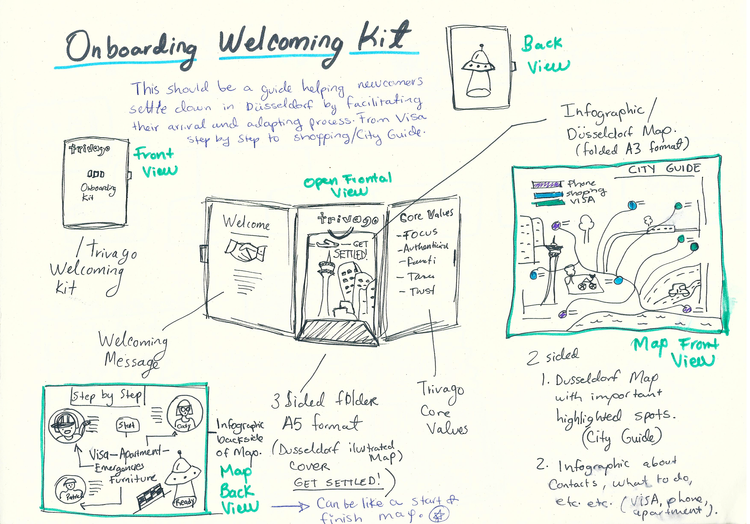 Onboarding Welcoming Kit
This should be a guide helping newcomers
settle down in Düsseldorf by facilitating
their arrival and adapting process. From Visa
step by step to shopping/City Guide.
Back
View
Front
View
trivago
Onboarding
Kit
/trivago
Welcoming
Kit
Open Frontal
View
Welcome
trivago
GET
SETTLED!
Core Values
- FOCUS
- Authenticity
- Fanati
- Trust
Infographic/
Düsseldorf Map.
(folded A3 format)
CITY GUIDE
Phone
shopping
VISA
Map Front
View
Welcoming
Message
3 Sided folder
A5 format
(Dusseldorf ilustrated
Map)
COVER
GET SETTLED!
Trivago
Core
Values
2 sided
1. Dusseldorf Map
with important
highlighted spots.
(City Guide)
2. Infographic about
Contacts, what to do,
etc. etc. (VISA, phone,
apartment).
Step by Step
Start
Visa-Apartment-
Emergencies
Furniture
Patrick
Ready
Infographic
backside
of Map.
Map
Back
View
Can be like a start &
finish map.